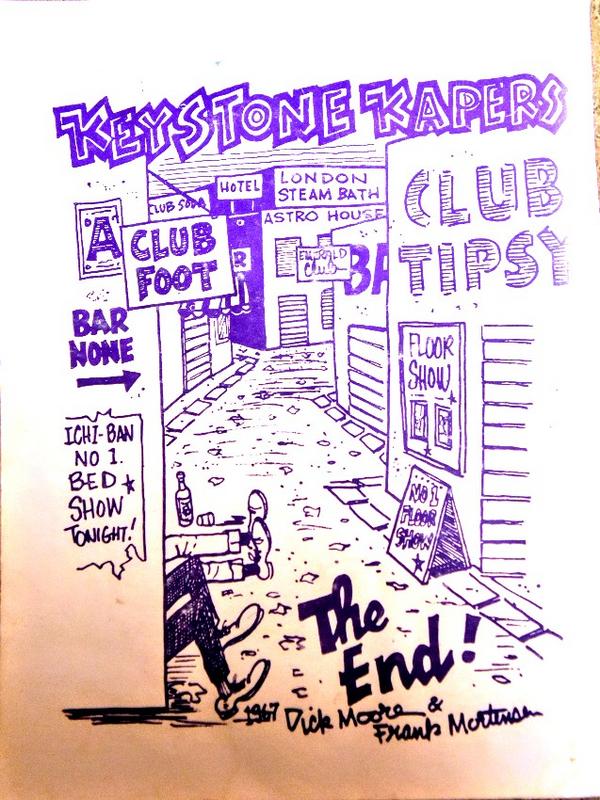 KEYSTONE KAPERS
HOTEL
LONDON
STEAM BATH
CLUB SODA
ASTRO HOUSE
A
CLUB
FOOT
R
EMERALD
Club
BA
CLUB
TIPSY
BAR
NONE
FLOOR
SHOW
ICHI-BAN
NO 1.
BED
SHOW
TONIGHT!
NO 1
FLOOR
SHOW
The
End!
1967 Dick Moore &
Frank Mortensen